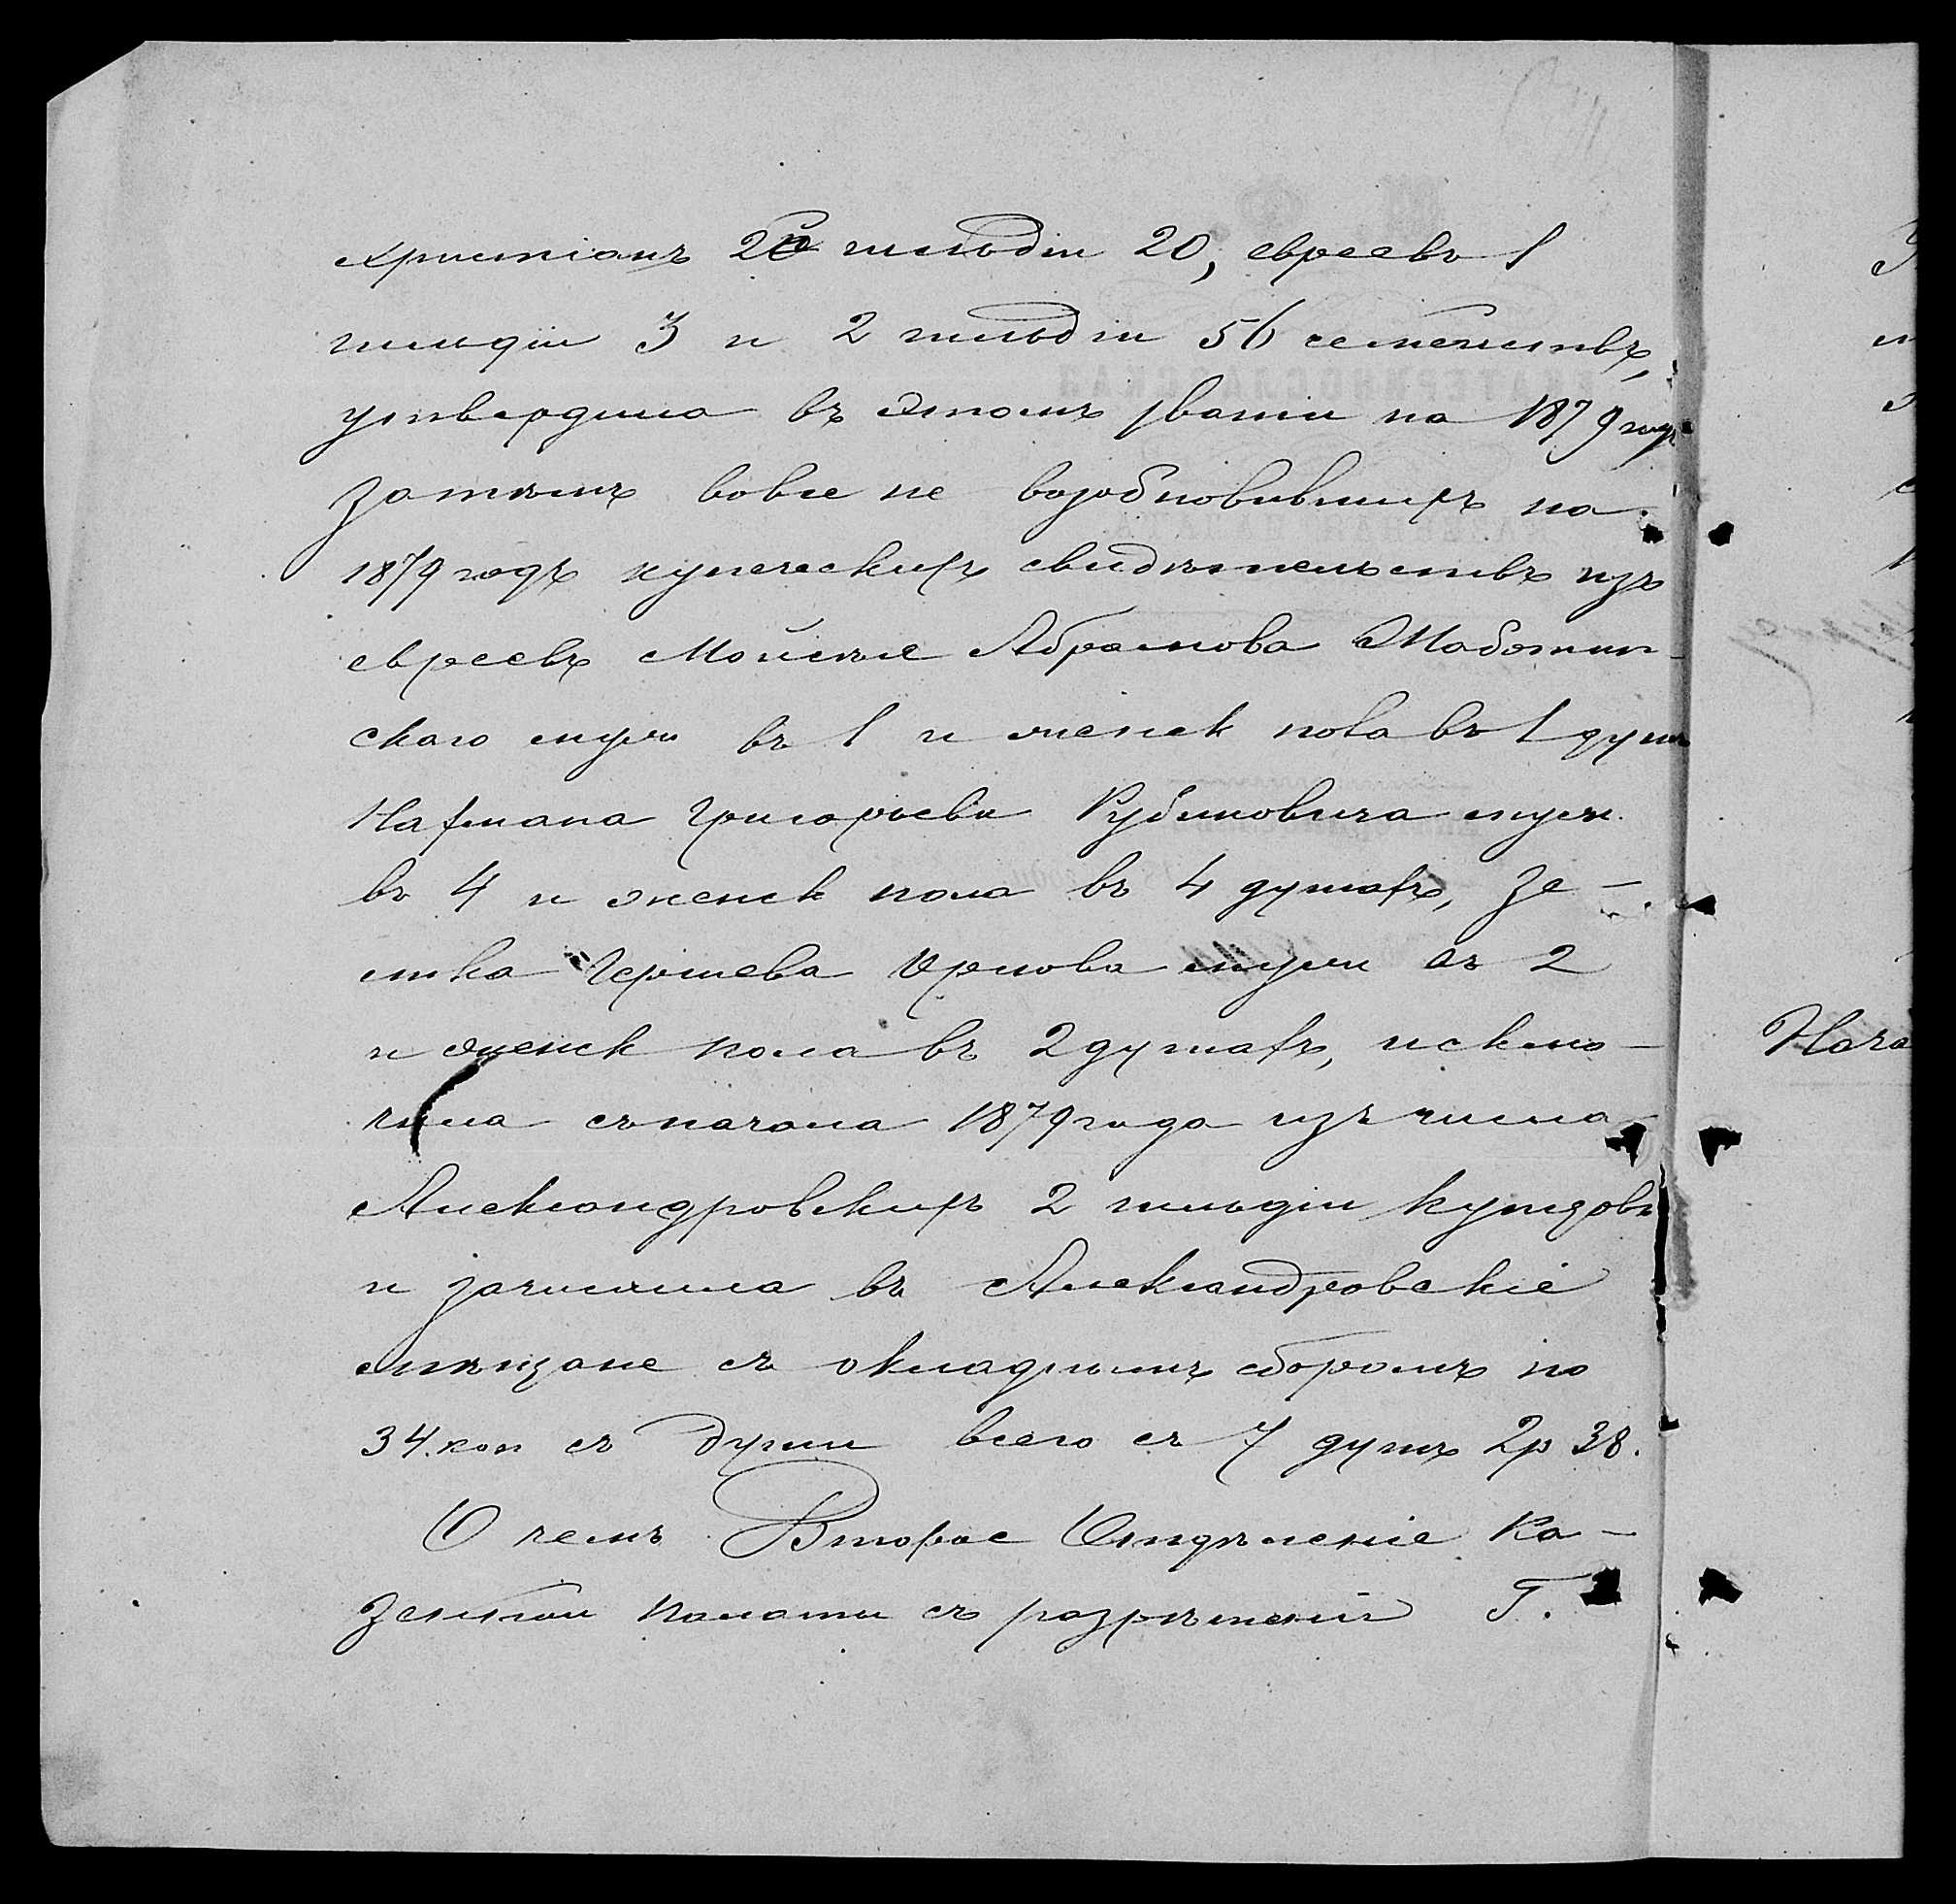 христіанъ 2й гильдіи 20, евреевъ 1
гильдіи 3 и 2 гильдіи 56 семействъ,
утвердила въ этомъ званіи на 1879 годъ
Затѣмъ вовсе не возобновившихъ на
1879 годъ купеческихъ свидѣтельствъ изъ
евреевъ Мойсѣя Абрамова
скаго муж въ 1 и женск пола въ 1 душѣ
Нахмана Григорьева Рубиновича муж.
въ 4 и женск пола въ 4 душахъ, Зе-
лика Гершева муж въ 2
и женск пола въ 2 душахъ, исклю-
чила съ начала 1879 года изъ числа
Александровскихъ 2 гильдіи купцовъ
и зачислила въ Александровскіе
мѣщане съ окладнымъ сборомъ по
34 коп съ души всего съ 7 душъ 2р 38.
О чемъ Второе Отдѣленіе Ка-
зенной Палаты съ разрѣшенія Г.
Нача